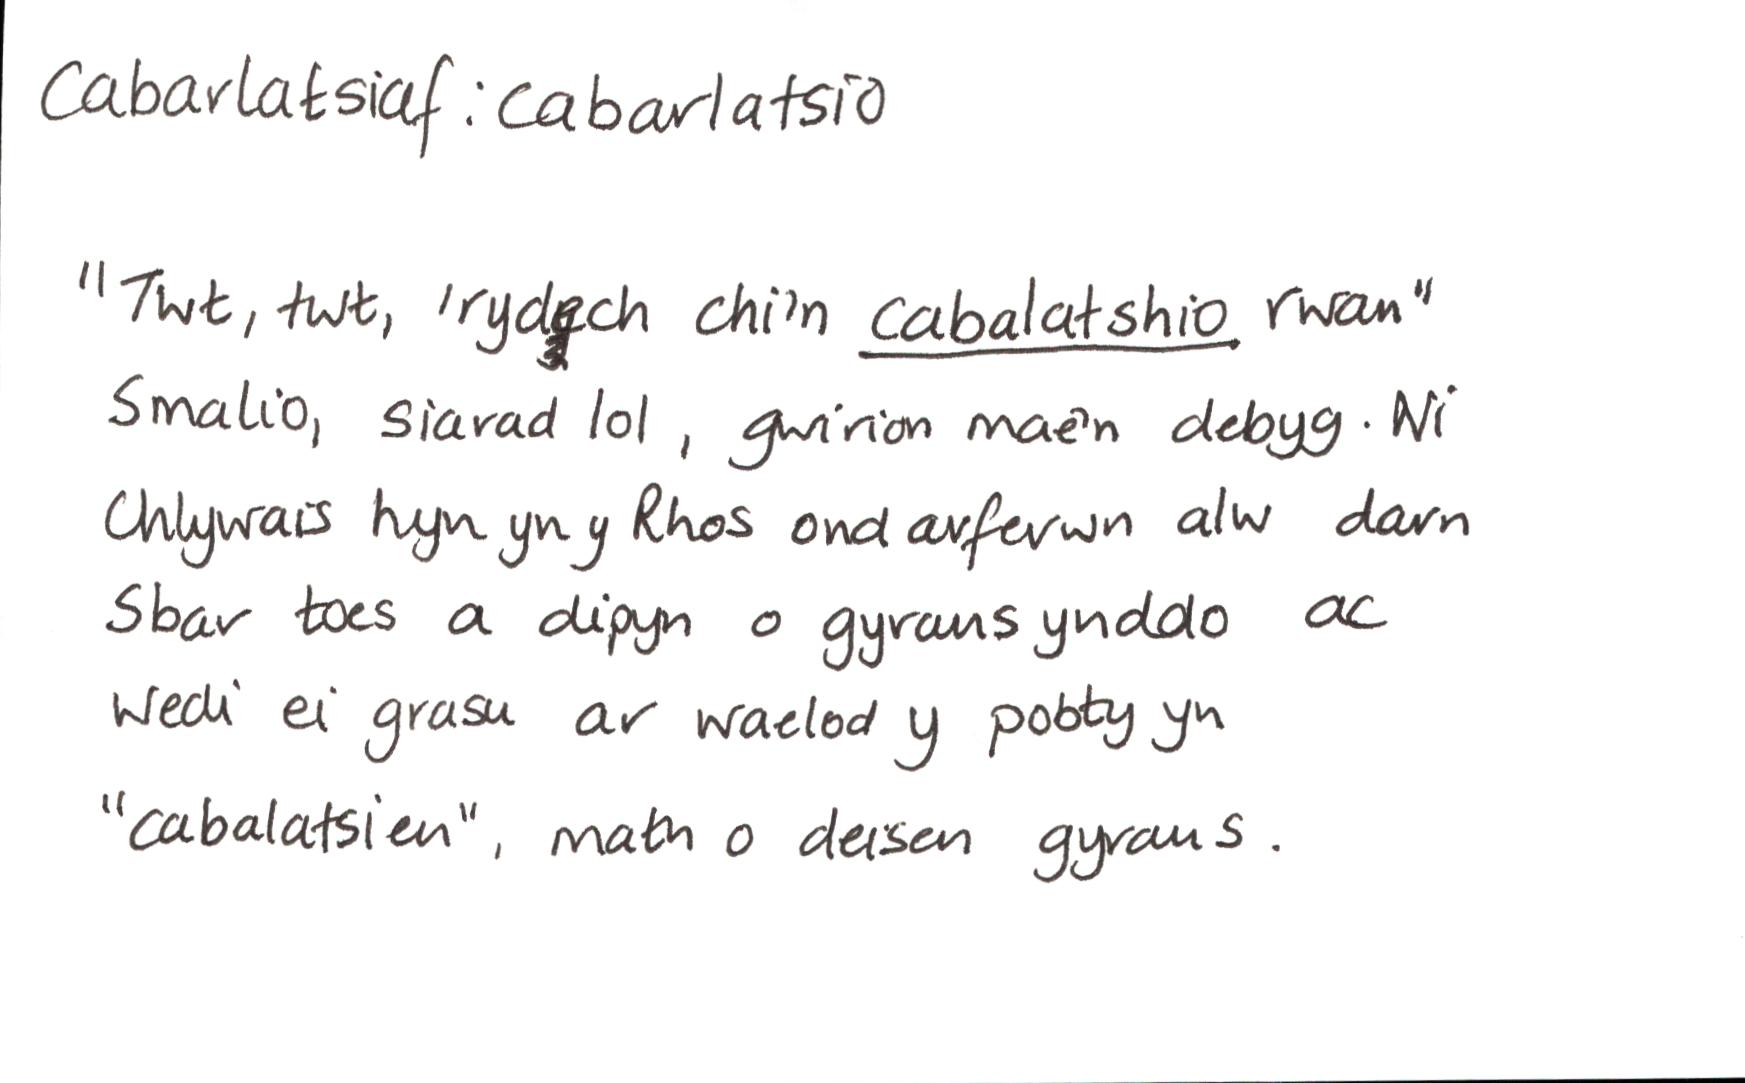 Cabarlatsiaf: cabarlatsio
"Twt, twt, 'rydech chi'n cabalatshio rwan"
Smalio, siarad lol, gwirion mae'n debyg. Ni
Chlywais hyn yn y Rhos ond arferwn alw darn
Sbar toes a dipyn o gyrans ynddo ac
wedi ei grasu ar waelod y pobty yn
"cabalatsien", math o deisen gyrans.